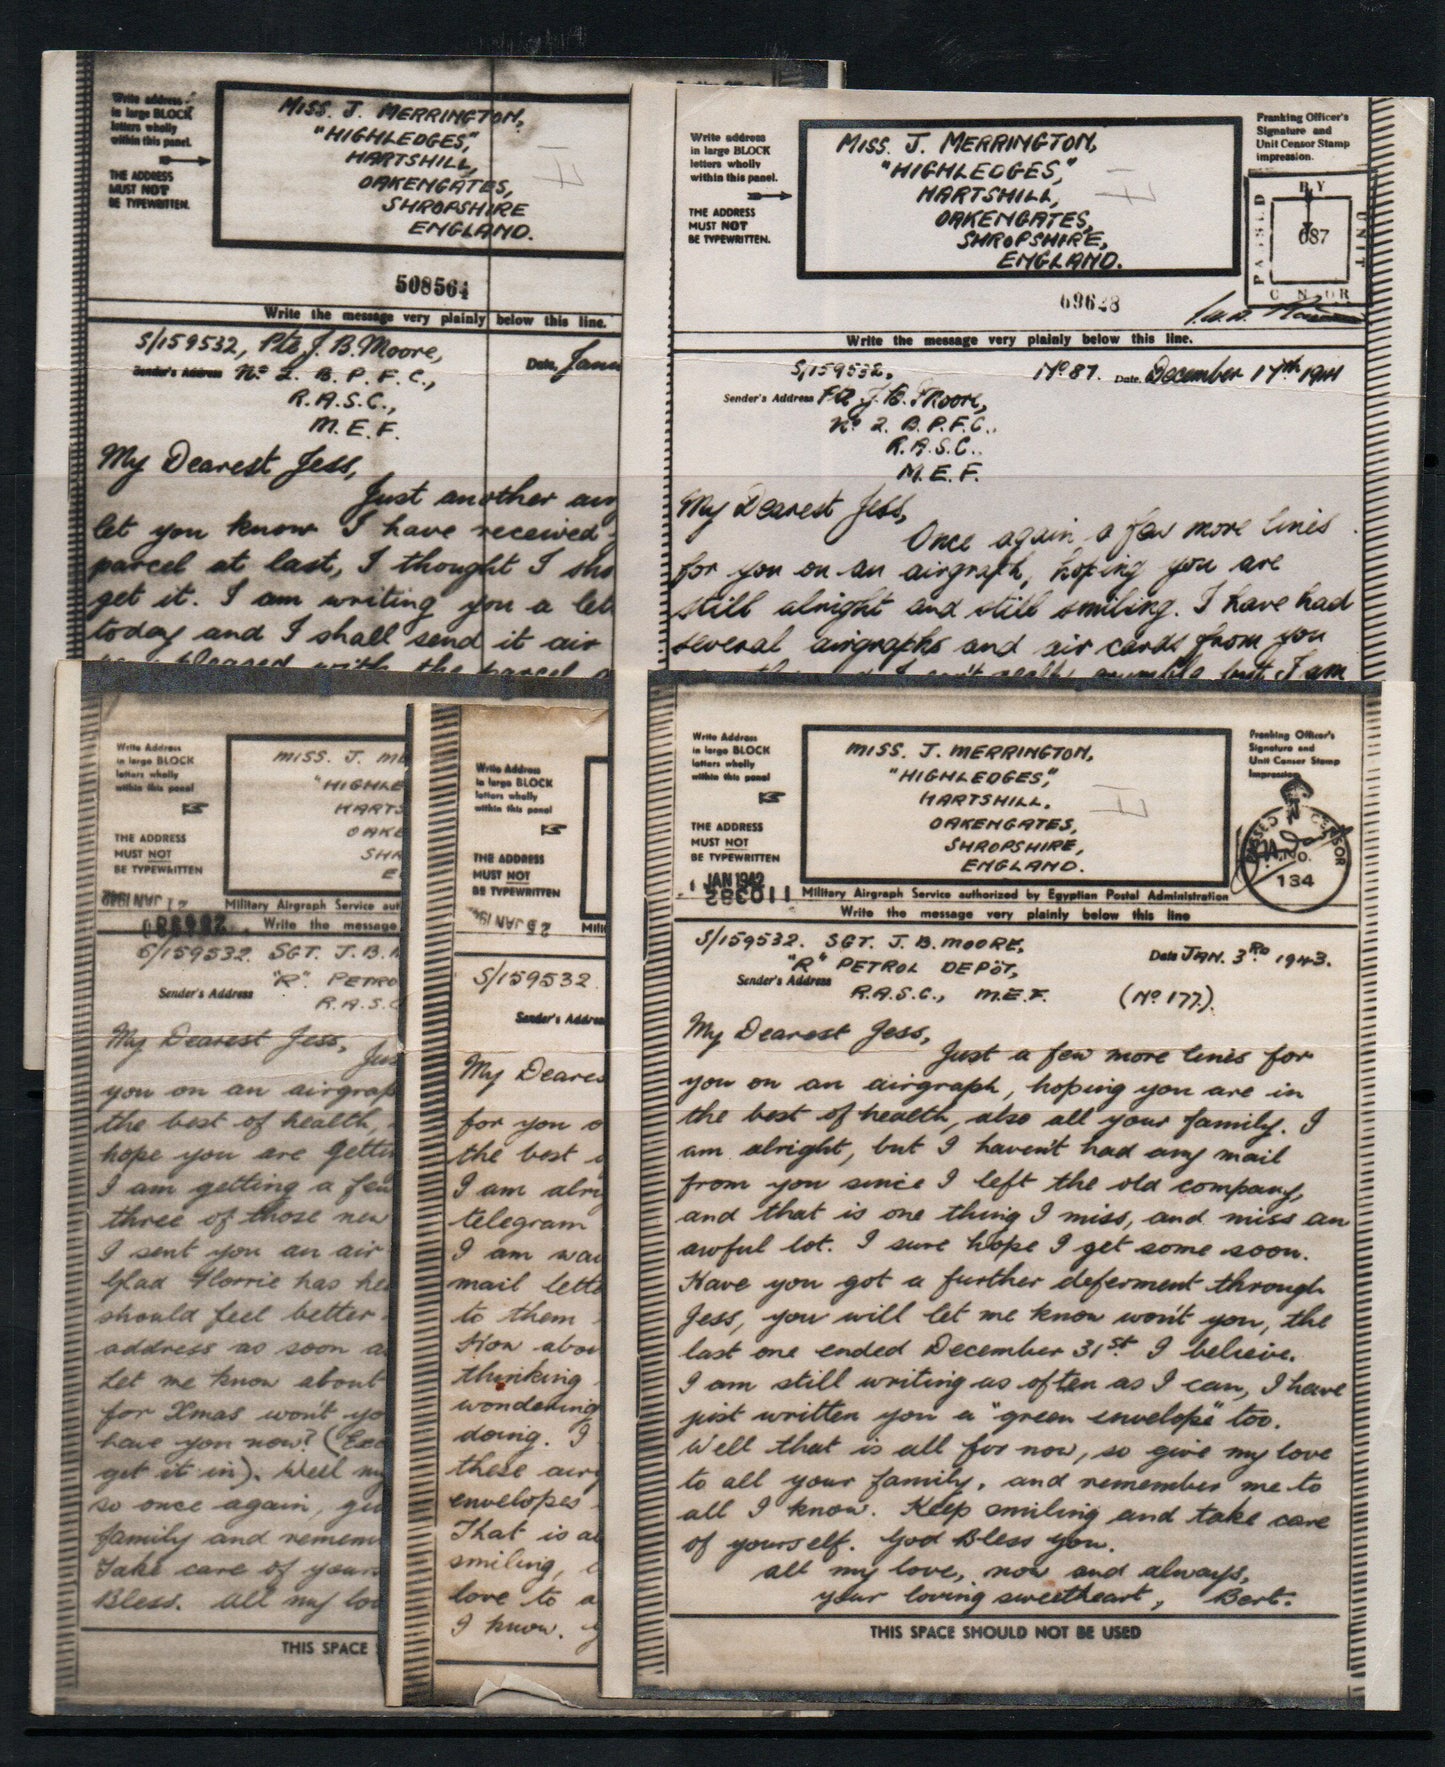 Write address
in large BLOCK
letters wholly
within this panel.
THE ADDRESS
MUST NOT
BE TYPEWRITTEN.
MISS. J. MERRINGTON,
"HIGHLEDGES,"
HARTSHILL,
OAKENGATES,
SHROPSHIRE
ENGLAND.
508564
Write the message very plainly below this line.
S/159532, Pte J. B. Moore,
Sender's Address No 2. B. P. F. C.,
Date,
R.A.S.C.,
M.E.F.
My Dearest Jess,
Just another
let you know I have received
parcel at last, I thought I
get it. I am writing you a
today and I shall send it air
pleased with the parcel
Write address
in large BLOCK
letters wholly
within this panel.
THE ADDRESS
MUST NOT
BE TYPEWRITTEN.
MISS. J. MERRINGTON,
"HIGHLEDGES,"
HARTSHILL,
OAKENGATES,
SHROPSHIRE,
ENGLAND.
Franking Officer's
Signature and
Unit Censor Stamp
impression.
PASSED BY UNIT
087
69628
Write the message very plainly below this line.
S/159532. No 87. Date December 17th 1941
Sender's Address Pte J. B. Moore,
No 2. B.P.F.C.,
R.A.S.C.,
M.E.F.
My Dearest Jess,
Once again a few more lines
for you on an airgraph, hoping you are
still alright and still smiling. I have had
several airgraphs and air cards from you
but I am
Write Address
in large BLOCK
letters wholly
within this panel
THE ADDRESS
MUST NOT
BE TYPEWRITTEN
MISS. J.
Military Airgraph Service
Write the message
S/159532 SGT. J. B.
"R"
Sender's Address
R.A.S.C
My Dearest Jess,
you on an
the best of health,
hope you are
I am getting a
three of those new
I sent you an air
Glad Florrie has
should feel better
address as soon
Let me know about
for Xmas won't
have you now?
get it in). Well
so once again,
family and
Take care of
Bless. All my
THIS SPACE
Write Address
in large BLOCK
letters wholly
within this panel
THE ADDRESS
MUST NOT
BE TYPEWRITTEN
S/159532
My
for you
the best
I am
telegram
I am
mail
to them
How
thinking
wondering
doing. I
these
envelopes
That is
smiling,
love to
I know.
Write Address
in large BLOCK
letters wholly
within this panel
THE ADDRESS
MUST NOT
BE TYPEWRITTEN
MISS. J. MERRINGTON,
"HIGHLEDGES,"
HARTSHILL.
OAKENGATES,
SHROPSHIRE,
ENGLAND.
Franking Officer's
Signature and
Unit Censor Stamp
Impression
CENSOR
No.
134
1 JAN 1942
110382
Military Airgraph Service authorized by Egyptian Postal Administration
Write the message very plainly below this line
S/159532. SGT. J. B. MOORE,
"R" PETROL DEPÔT,
Date JAN. 3RD 1943.
Sender's Address R.A.S.C., M.E.F. (No 177).
My Dearest Jess,
Just a few more lines for
you on an airgraph, hoping you are in
the best of health, also all your family. I
am alright, but I haven't had any mail
from you since I left the old company,
and that is one thing I miss, and miss an
awful lot. I sure hope I get some soon.
Have you got a further deferment through
Jess, you will let me know won't you, the
last one ended December 31st I believe.
I am still writing as often as I can, I have
just written you a "green envelope" too.
Well that is all for now, so give my love
to all your family, and remember me to
all I know. Keep smiling and take care
of yourself. God Bless You.
All my love, now and always,
your loving sweetheart, Bert.
THIS SPACE SHOULD NOT BE USED